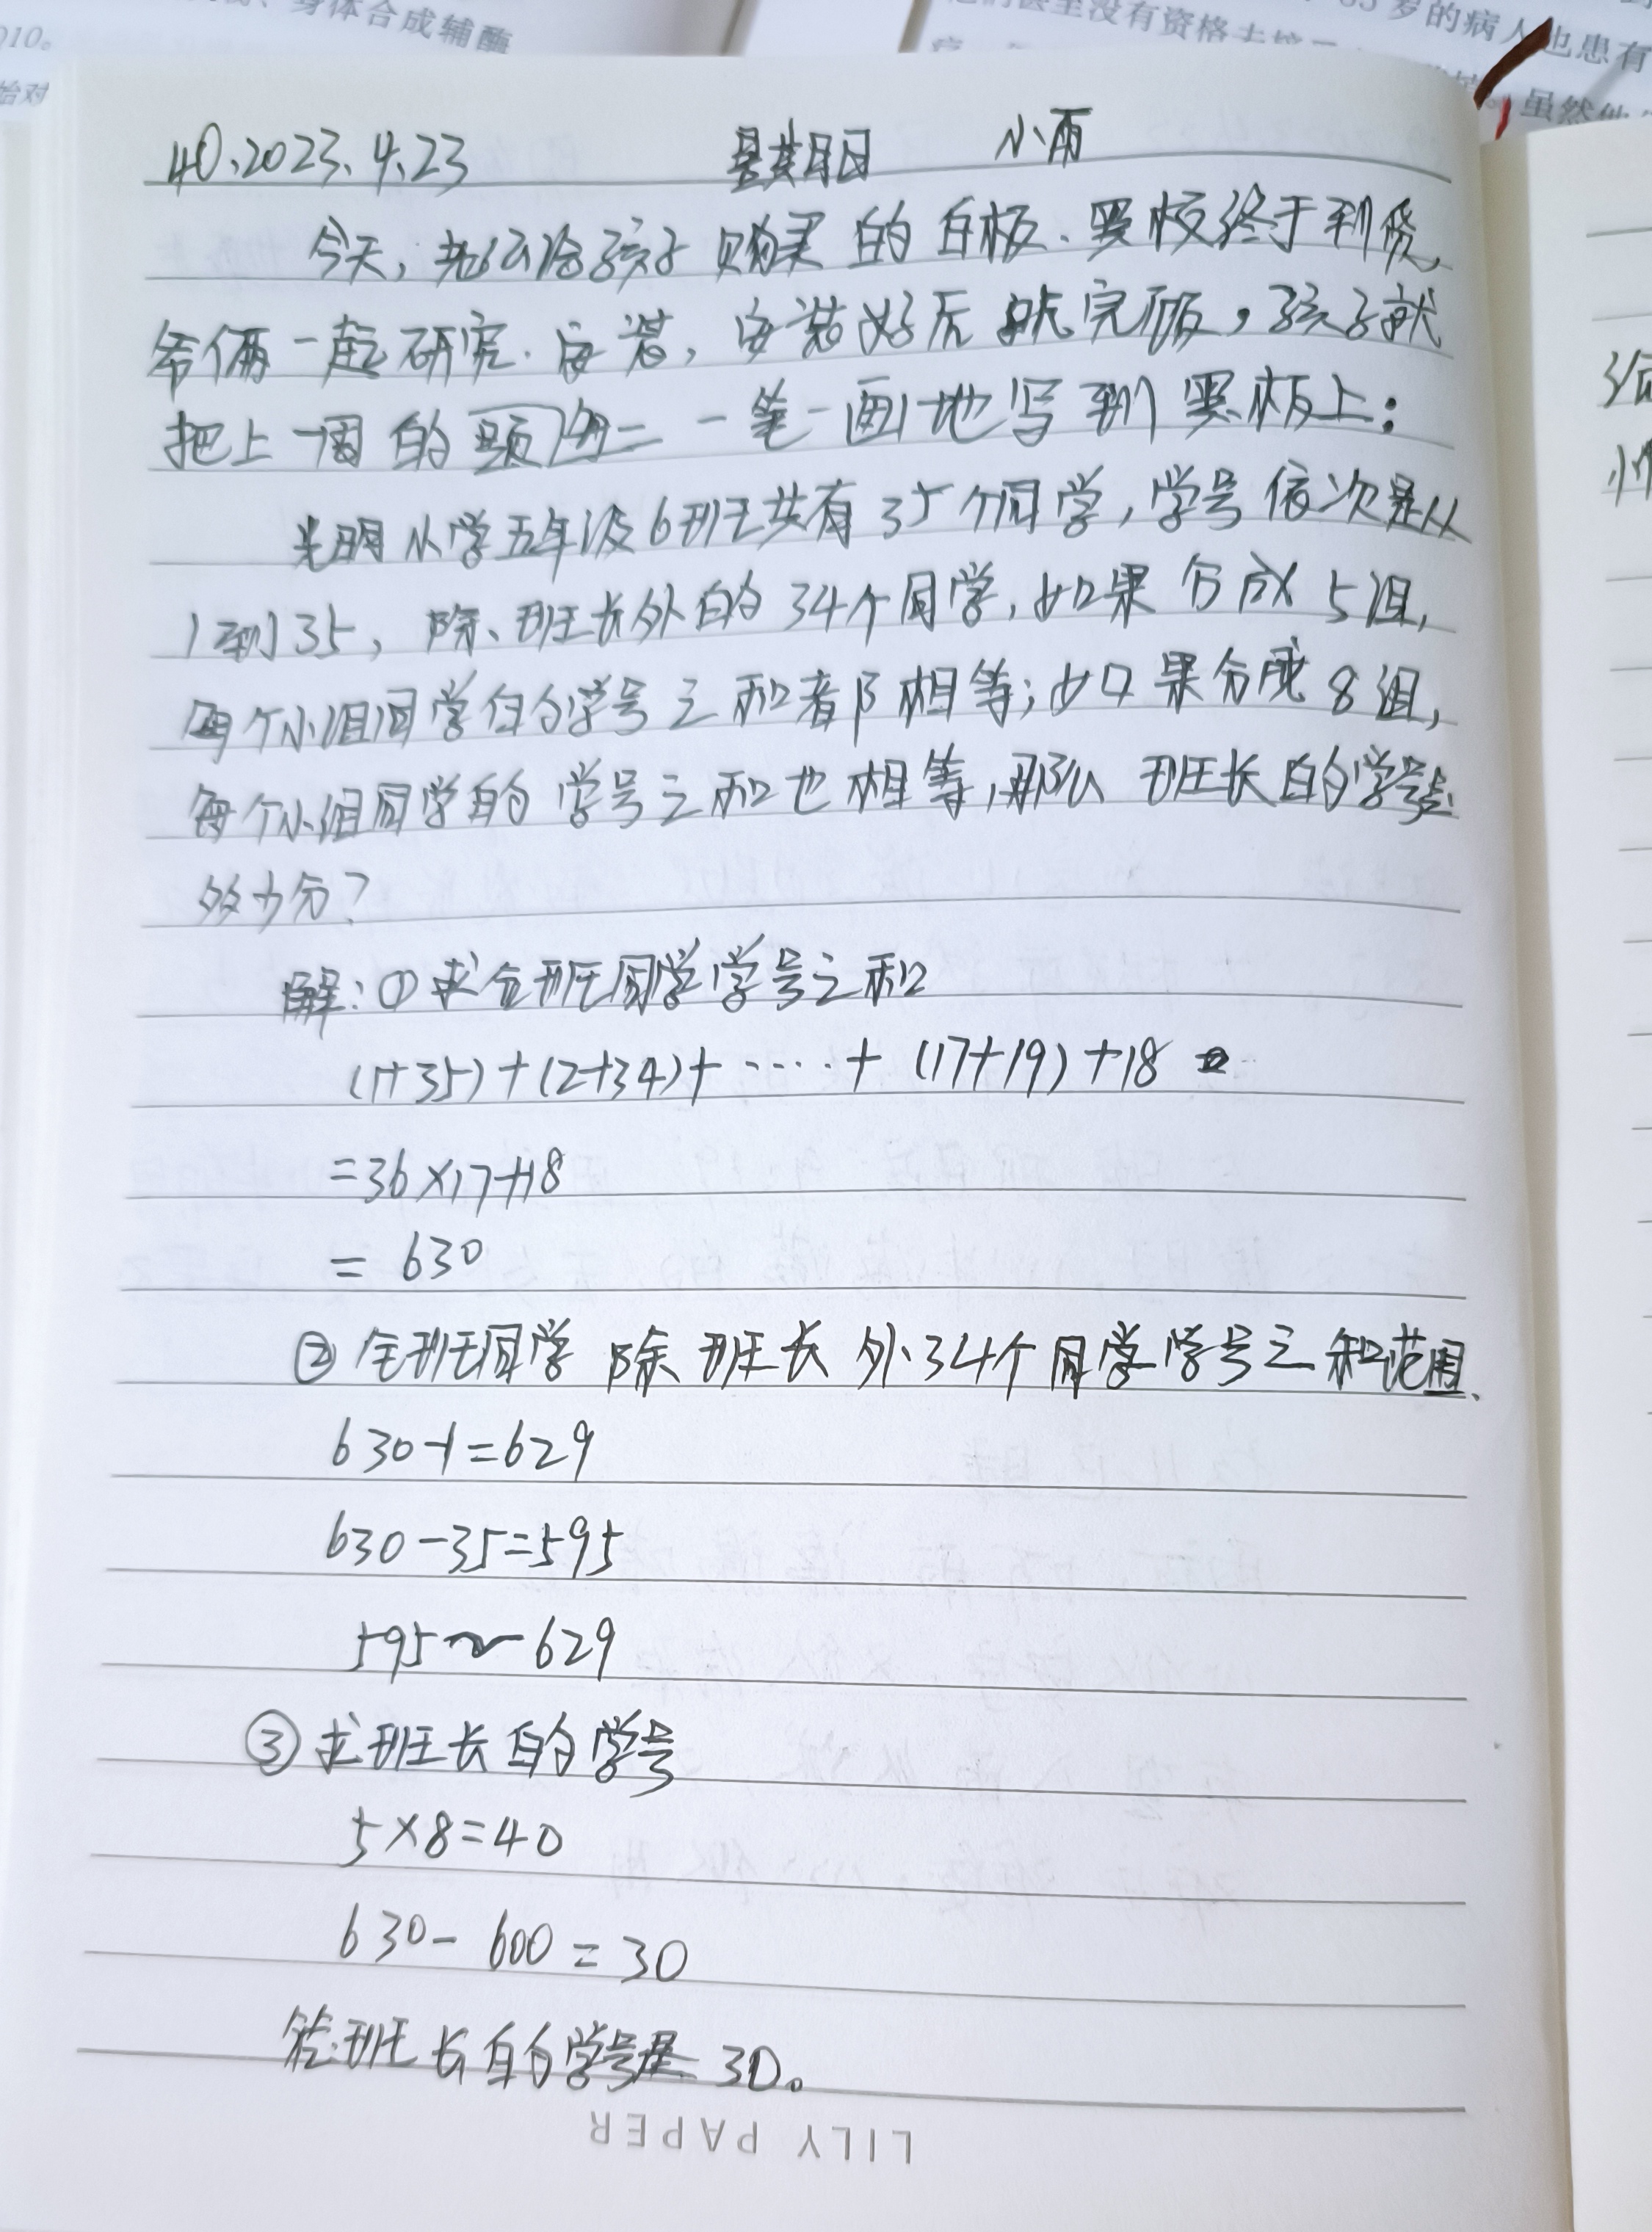 010。
、身体合成辅酶
始对
们甚至没有资格去
岁的病人也患有
虽然他
40、2023、4、23 星期日 小雨
今天，我给孩子购买的白板、黑板终于到货，
爷俩一起研究、安装，安装好后就完饭，孩子就
把上一周的题例二一笔一画地写到黑板上：
光明小学五年级6班共有35个同学，学号依次是从
1到35，除、班长外的34个同学，如果分成5组，
每个小组同学的学号之和都相等；如果分成8组，
每个小组同学的学号之和也相等，那么班长的学号是
多少分？
解：①求全班同学学号之和
(1+35)+(2+34)+·····+(17+19)+18
=36×17+18
=630
②全班同学除班长外34个同学学号之和范围、
630-1=629
630-35=595
595～629
③求班长的学号
5×8=40
630-600=30
答：班长的学号是30。
LILY PAPER